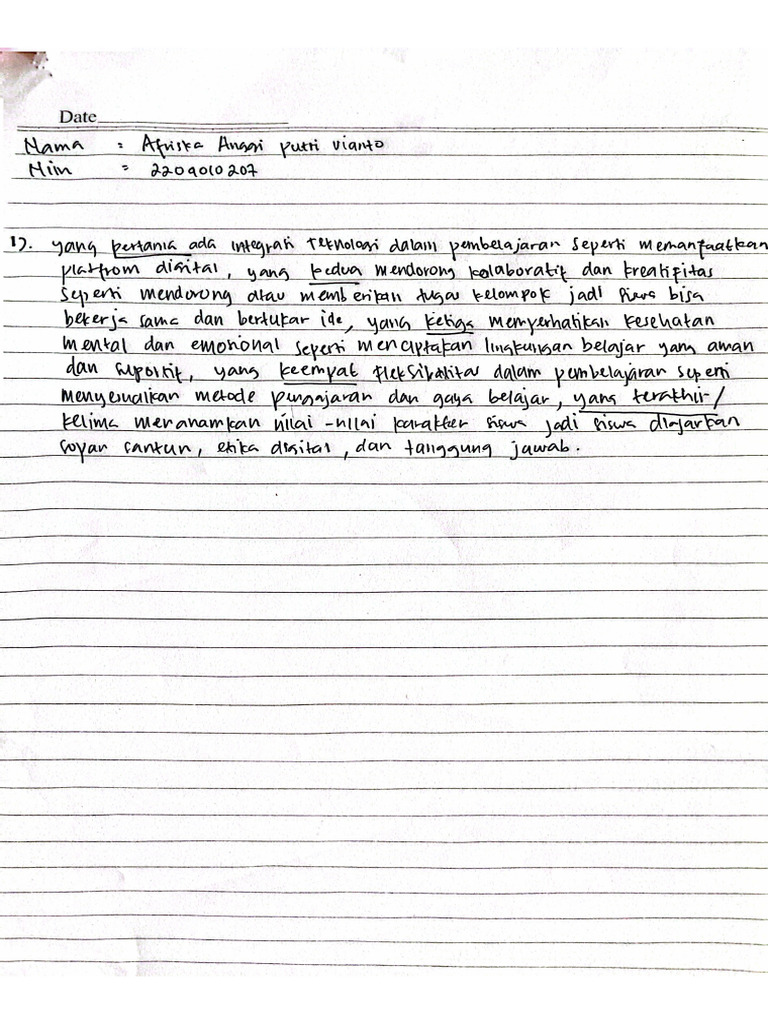 Date
Nama : Afriska Anggi putri vianto
Nim : 2209010207
1). yang pertama ada integrasi Teknologi dalam pembelajaran seperti memanfaatkan
platfrom digital, yang kedua mendorong kolaboratif dan kreatifitas
seperti mendorong atau memberikan tugas kelompok jadi siswa bisa
bekerja sama dan bertukar ide, yang ketiga memperhatikan kesehatan
mental dan emosional seperti menciptakan lingkungan belajar yang aman
dan suportif, yang keempat fleksibelitas dalam pembelajaran seperti
menyesuaikan metode pengajaran dan gaya belajar, yang terakhir/
kelima menanamkan nilai-nilai karakter siswa jadi siswa diajarkan
sopan santun, etika digital, dan tanggung jawab.